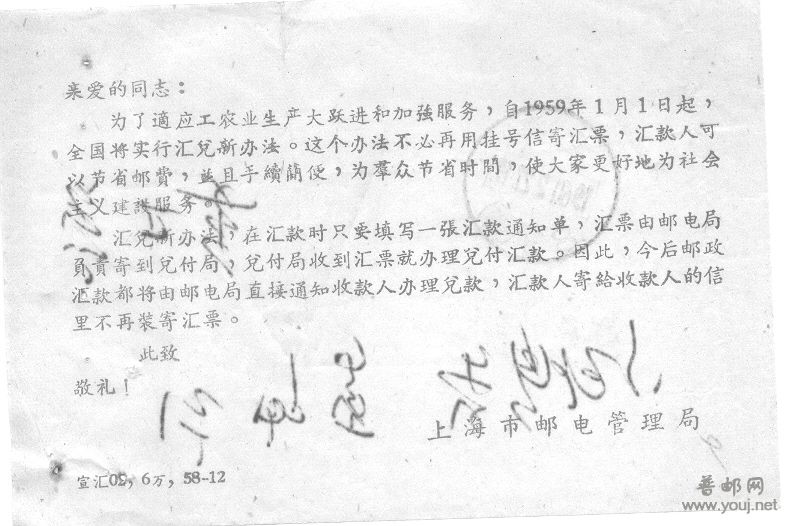 亲爱的同志：
为了適应工农业生产大跃进和加強服务，自1959年1月1日起，
全国将实行汇兑新办法。这个办法不必再用挂号信寄汇票，汇款人可
以节省邮費，並且手續簡便，为羣众节省时間，使大家更好地为社会
主义建設服务。
汇兑新办法，在汇款时只要填写一張汇款通知单，汇票由邮电局
負責寄到兑付局，兑付局收到汇票就办理兑付汇款。因此，今后邮政
汇款都将由邮电局直接通知收款人办理兑款，汇款人寄給收款人的信
里不再装寄汇票。
此致
敬礼！
上海市邮电管理局
宣汇02，6万，58-12
普邮网
www.youj.net